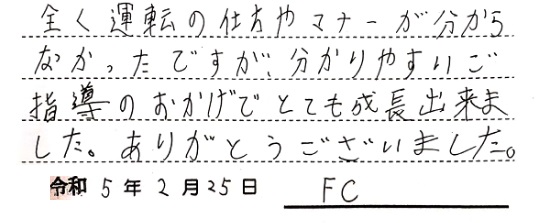 全く運転の仕方やマナーが分から
なかったですが、分かりやすいご
指導のおかげでとても成長出来ま
した。ありがとうございました。
令和5年2月25日 FC